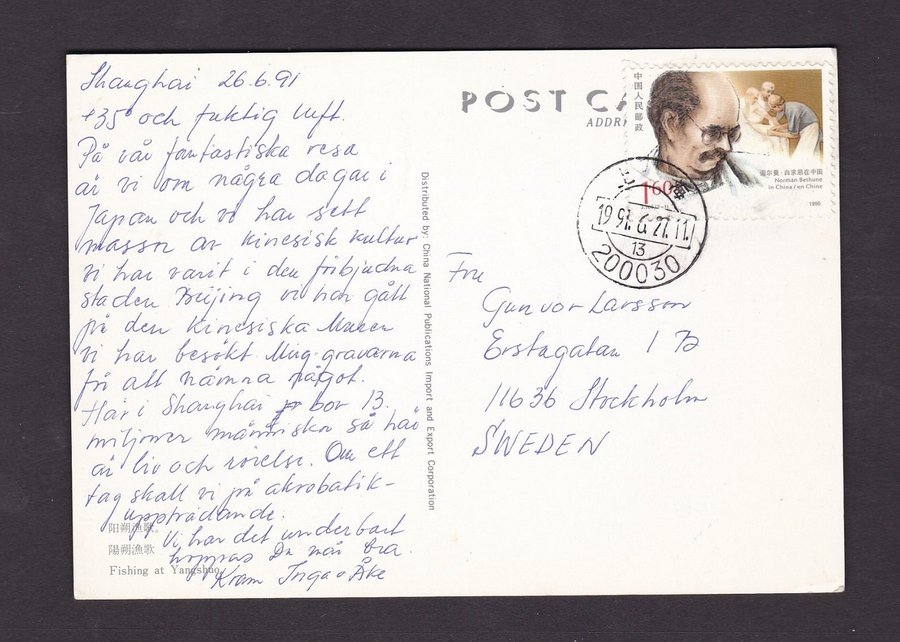 Shanghai 26.6.91
+35° och fuktig luft.
På vår fantastiska resa
är vi om några dagar i
Japan och vi har sett
massor av kinesisk kultur
vi har varit i den förbjudna
staden Beijing vi har gått
på den Kinesiska Muren
vi har besökt Ming-gravarna
för att nämna något.
Här i Shanghai bor 13
miljoner människor så här
är liv och rörelse. Om ett
tag skall vi på akrobatik-
uppträdande.
Vi har det underbart
hoppas Du mår bra.
Kram Inga o Åke
阳朔渔歌。
陽朔漁歌
Fishing at Yangshuo
Distributed by: China National Publications Import and Export Corporation
POST CA
ADDR
中国人民邮政
诺尔曼·白求恩在中国
Norman Bethune
in China / en Chine
1990
1.60
上海
1991.6.27.11
13
200030
Fru
Gunvor Larsson
Erstagatan 1 B
11636 Stockholm
SWEDEN